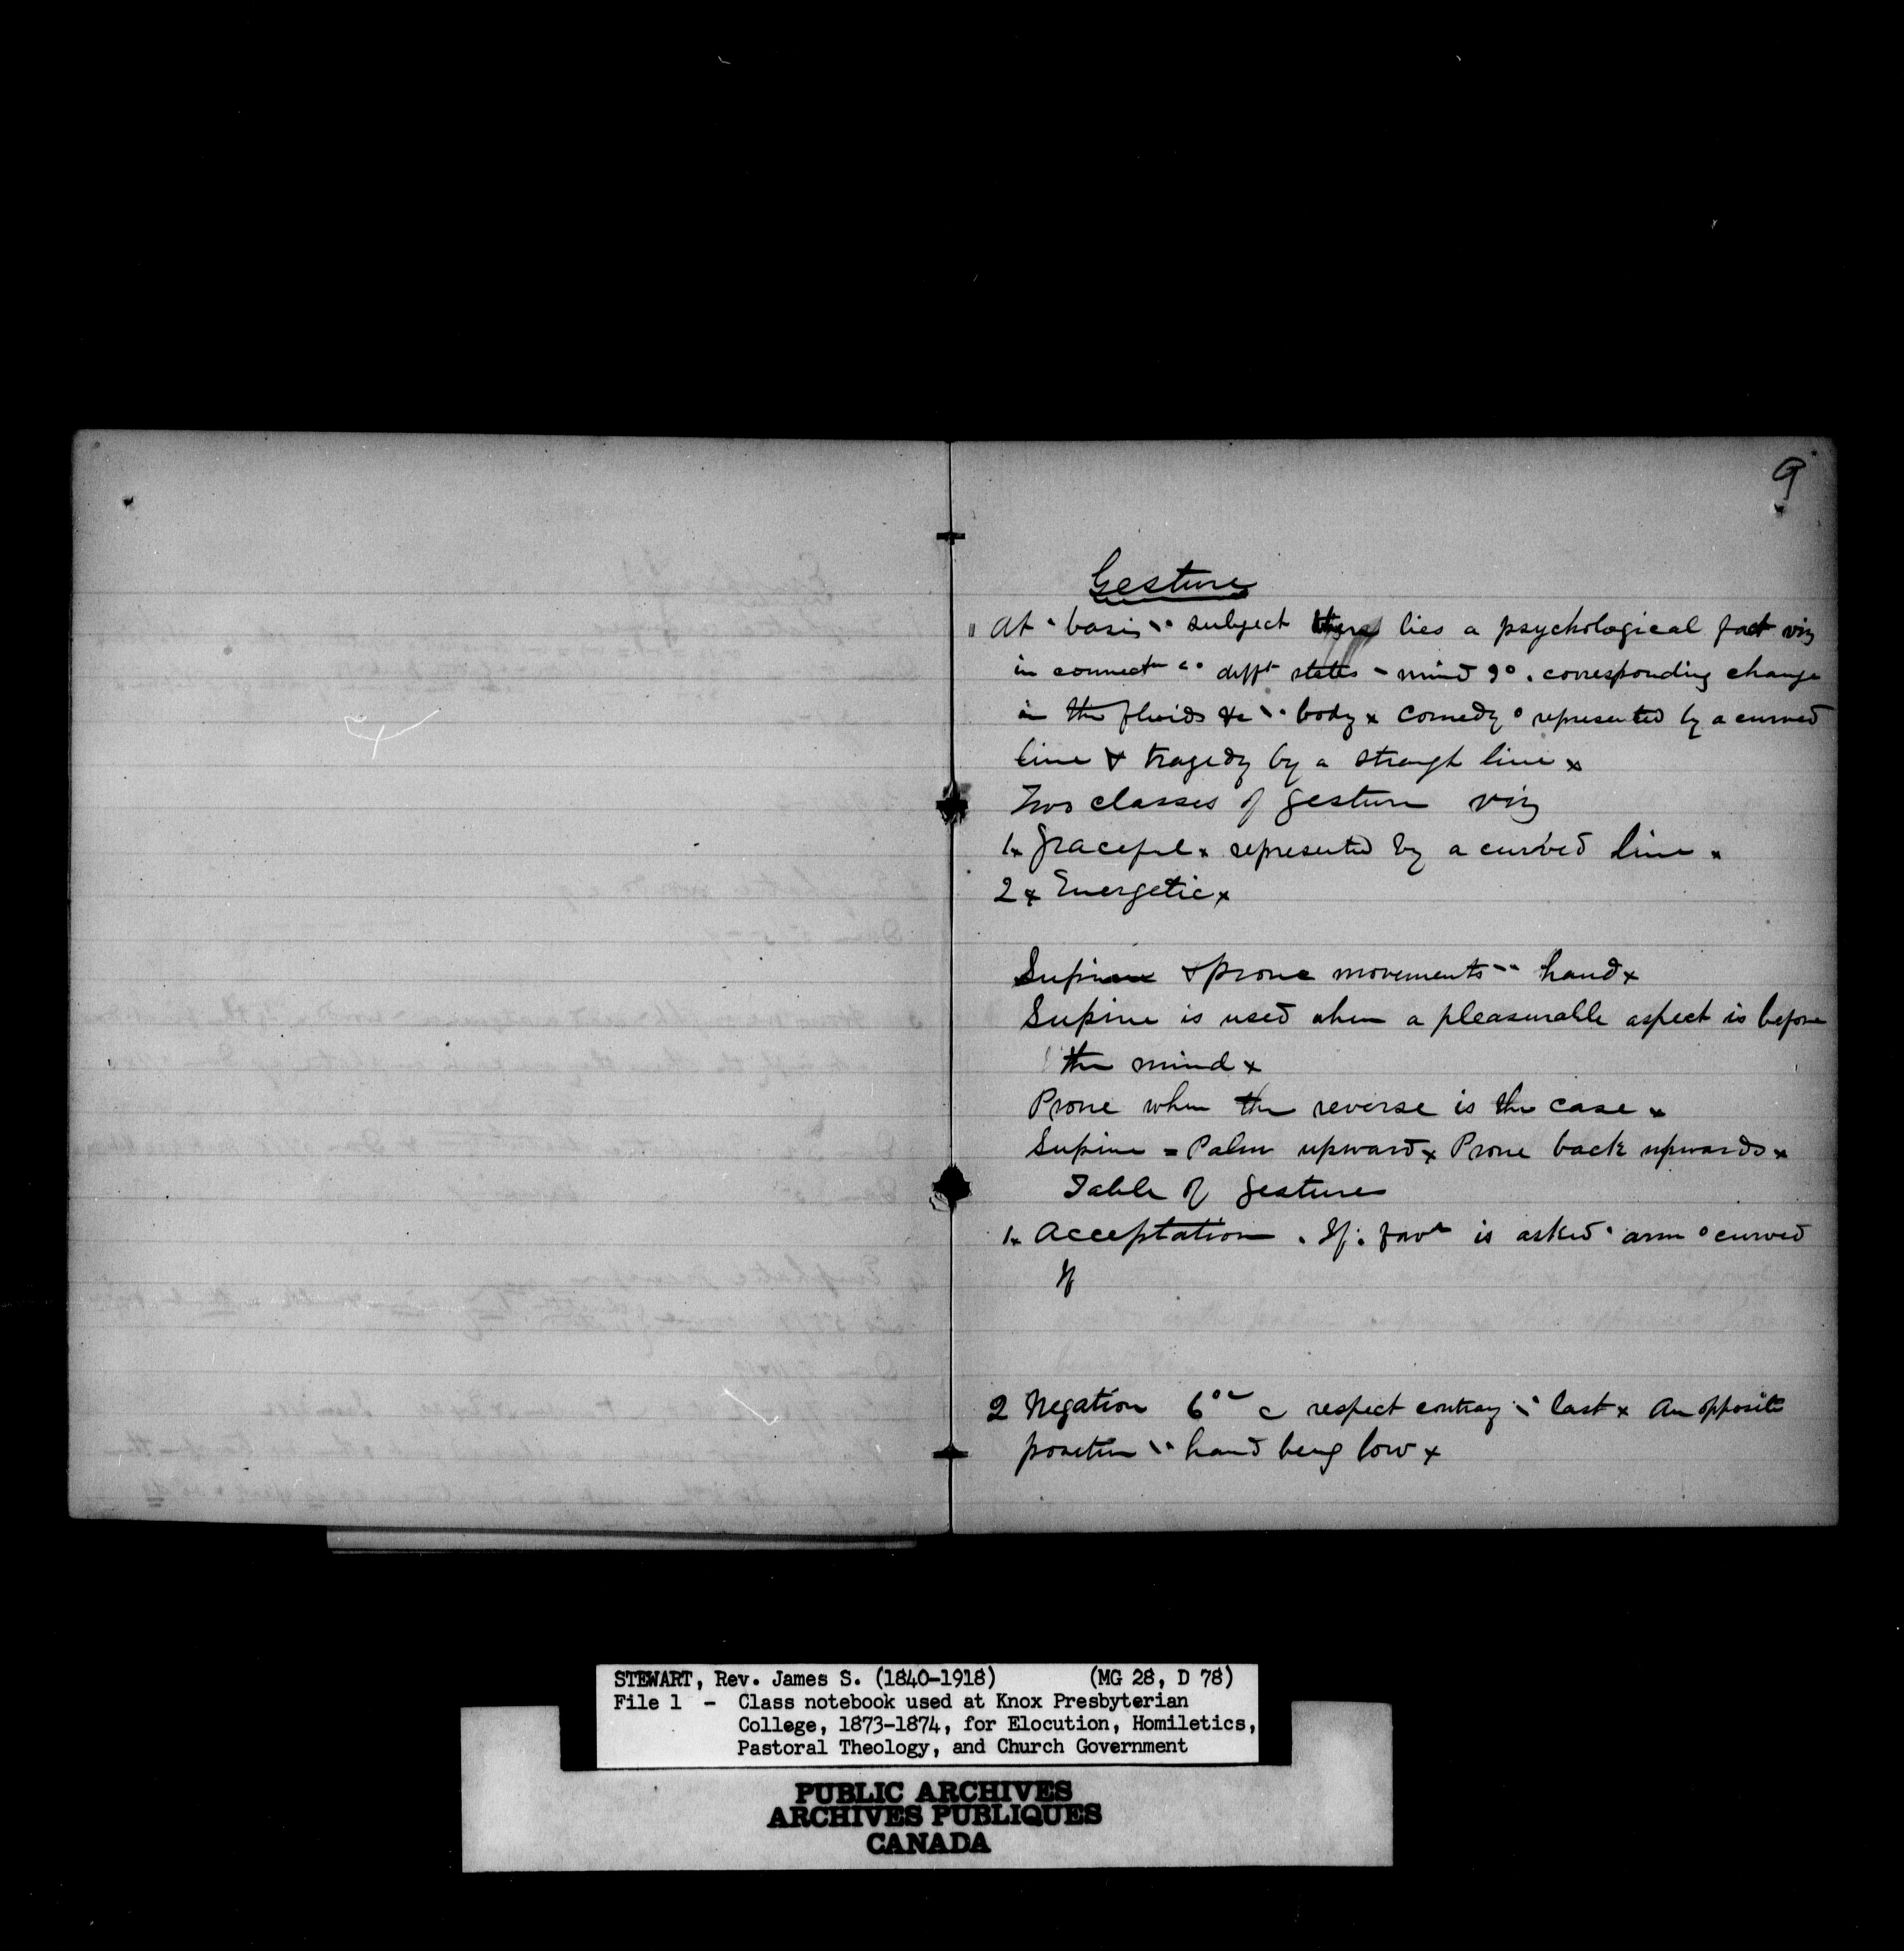 9
Gesture
At · basis \· subject there lies a psychological fact viz
in connectn c· difft states - mind 9° . corresponding change
in the fluids &c \· body x Comedy ° represented by a curved
line & tragedy by a straigh line x
Two classes of gesture viz
1x Graceful x represented by a curved line x
2 x Energetic x
Supine & prone movements \· hand x
Supine is used when a pleasurable aspect is before
the mind x
Prone when the reverse is the case x
Supine = Palm upward x Prone back upwards x
Table of gestures
1x Acceptation . If . favr is asked · arm ° curved
If
2 Negation c respect contray \· last x An opposite
position \· hand being low x
STEWART, Rev. James S. (1840-1918) (MG 28, D 78)
File 1 - Class notebook used at Knox Presbyterian
College, 1873-1874, for Elocution, Homiletics,
Pastoral Theology, and Church Government
PUBLIC ARCHIVES
ARCHIVES PUBLIQUES
CANADA